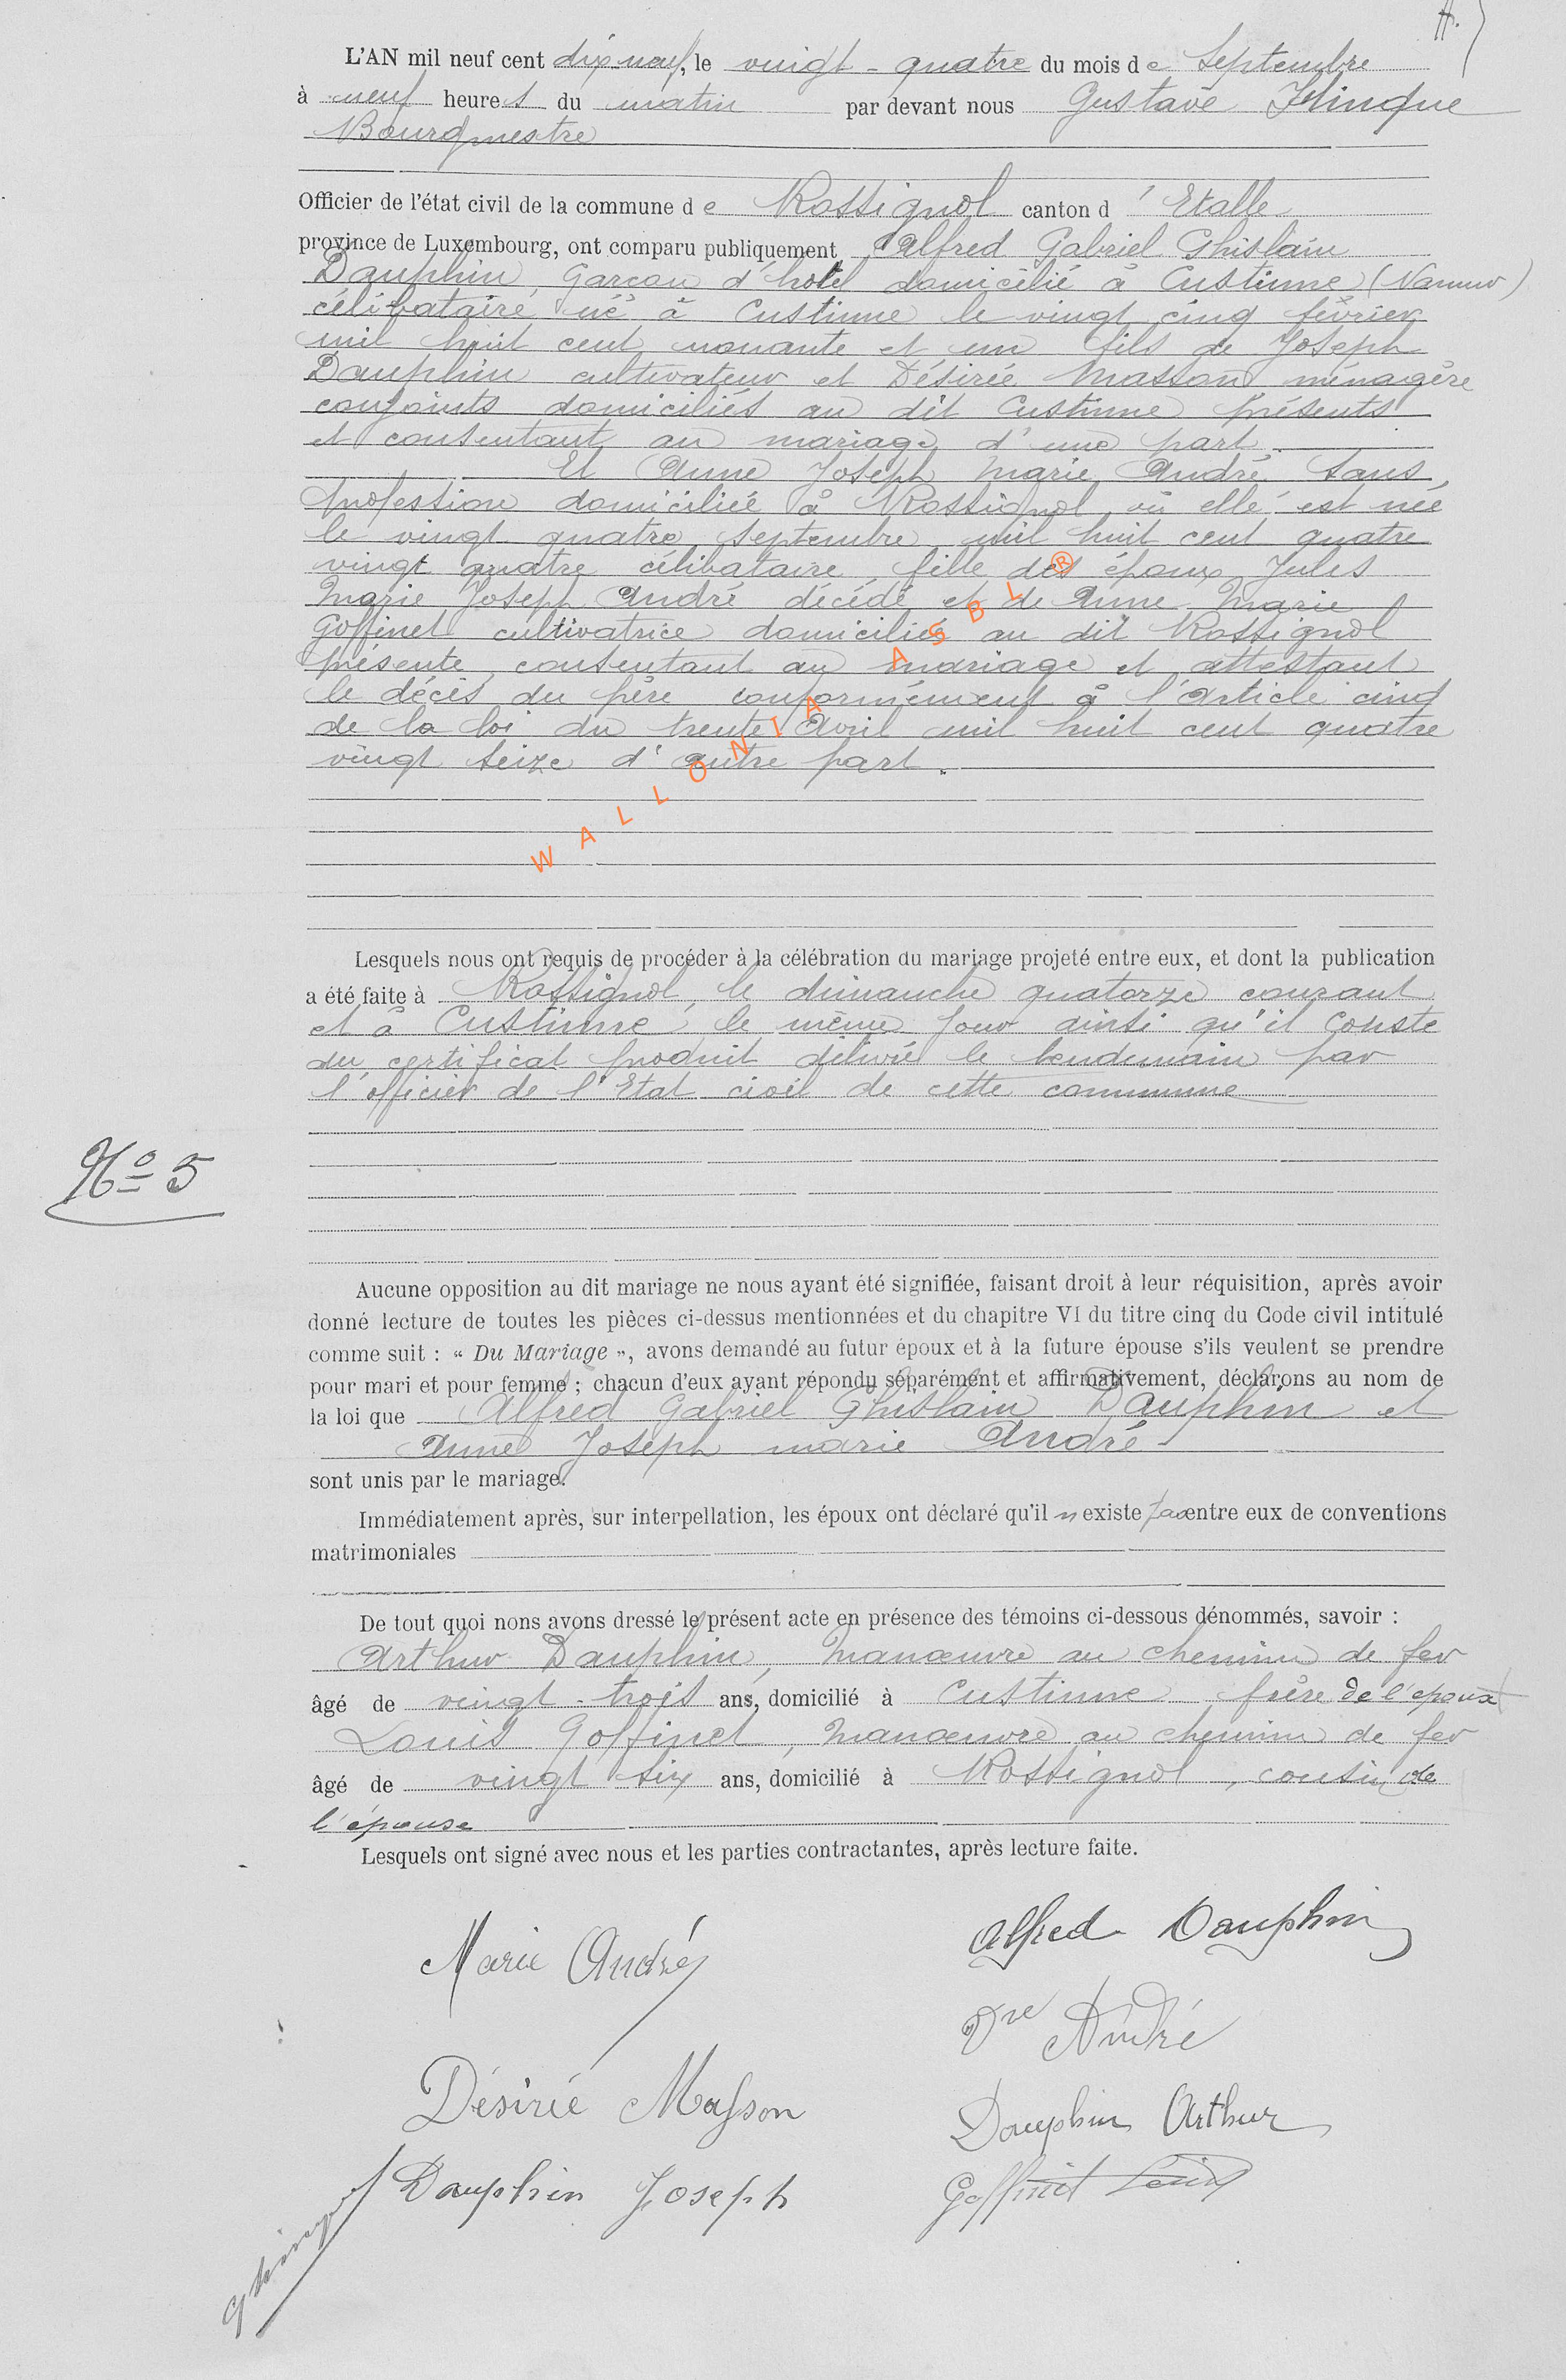 L'AN mil neuf cent dix-neuf, le vingt-quatre du mois de Septembre
à neuf heures du matin par devant nous Gustave Hinque
Bourgmestre
Officier de l'état civil de la commune de Rossignol canton d'Etalle
province de Luxembourg, ont comparu publiquement Alfred Gabriel Ghislain
Dauphin, garçon d'hôtel domicilié à Custinne (Namur)
célibataire né à Custinne le vingt cinq février
mil huit cent nonante et un fils de Joseph
Dauphin cultivateur et Désirée Masson ménagère
conjoints domiciliés au dit Custinne présents
et consentant au mariage d'une part.
Et Anne Joseph Marie André sans
profession domiciliée à Rossignol où elle est née
le vingt quatre septembre mil huit cent quatre
vingt quatre célibataire fille des époux Jules
Marie Joseph André décédé et de Anne Marie
Goffinet cultivatrice domiciliée au dit Rossignol
présente consentant au mariage et attestant
le décès du père conformément à l'article cinq
de la loi du trente Avril mil huit cent quatre
vingt seize d'autre part.
WALLONIA ASBL ®
Lesquels nous ont requis de procéder à la célébration du mariage projeté entre eux, et dont la publication
a été faite à Rossignol, le dimanche quatorze courant
et à Custinne le même jour ainsi qu'il conste
du certificat produit délivré le lendemain par
l'officier de l'Etat civil de cette commune
No 5
Aucune opposition au dit mariage ne nous ayant été signifiée, faisant droit à leur réquisition, après avoir
donné lecture de toutes les pièces ci-dessus mentionnées et du chapitre VI du titre cinq du Code civil intitulé
comme suit : « Du Mariage », avons demandé au futur époux et à la future épouse s'ils veulent se prendre
pour mari et pour femme ; chacun d'eux ayant répondu séparément et affirmativement, déclarons au nom de
la loi que Alfred Gabriel Ghislain Dauphin et
Anne Joseph marie André
sont unis par le mariage.
Immédiatement après, sur interpellation, les époux ont déclaré qu'il n'existe pas entre eux de conventions
matrimoniales
De tout quoi nons avons dressé le présent acte en présence des témoins ci-dessous dénommés, savoir :
Arthur Dauphin, manœuvre au chemin de fer
âgé de vingt-trois ans, domicilié à Custinne frère de l'époux
Louis Goffinet, manœuvre au chemin de fer
âgé de vingt six ans, domicilié à Rossignol, cousin de
l'épouse
Lesquels ont signé avec nous et les parties contractantes, après lecture faite.
Marie André
Alfred Dauphin
Vve André
Désirée Masson
Dauphin Arthur
Dauphin Joseph
Goffinet Louis